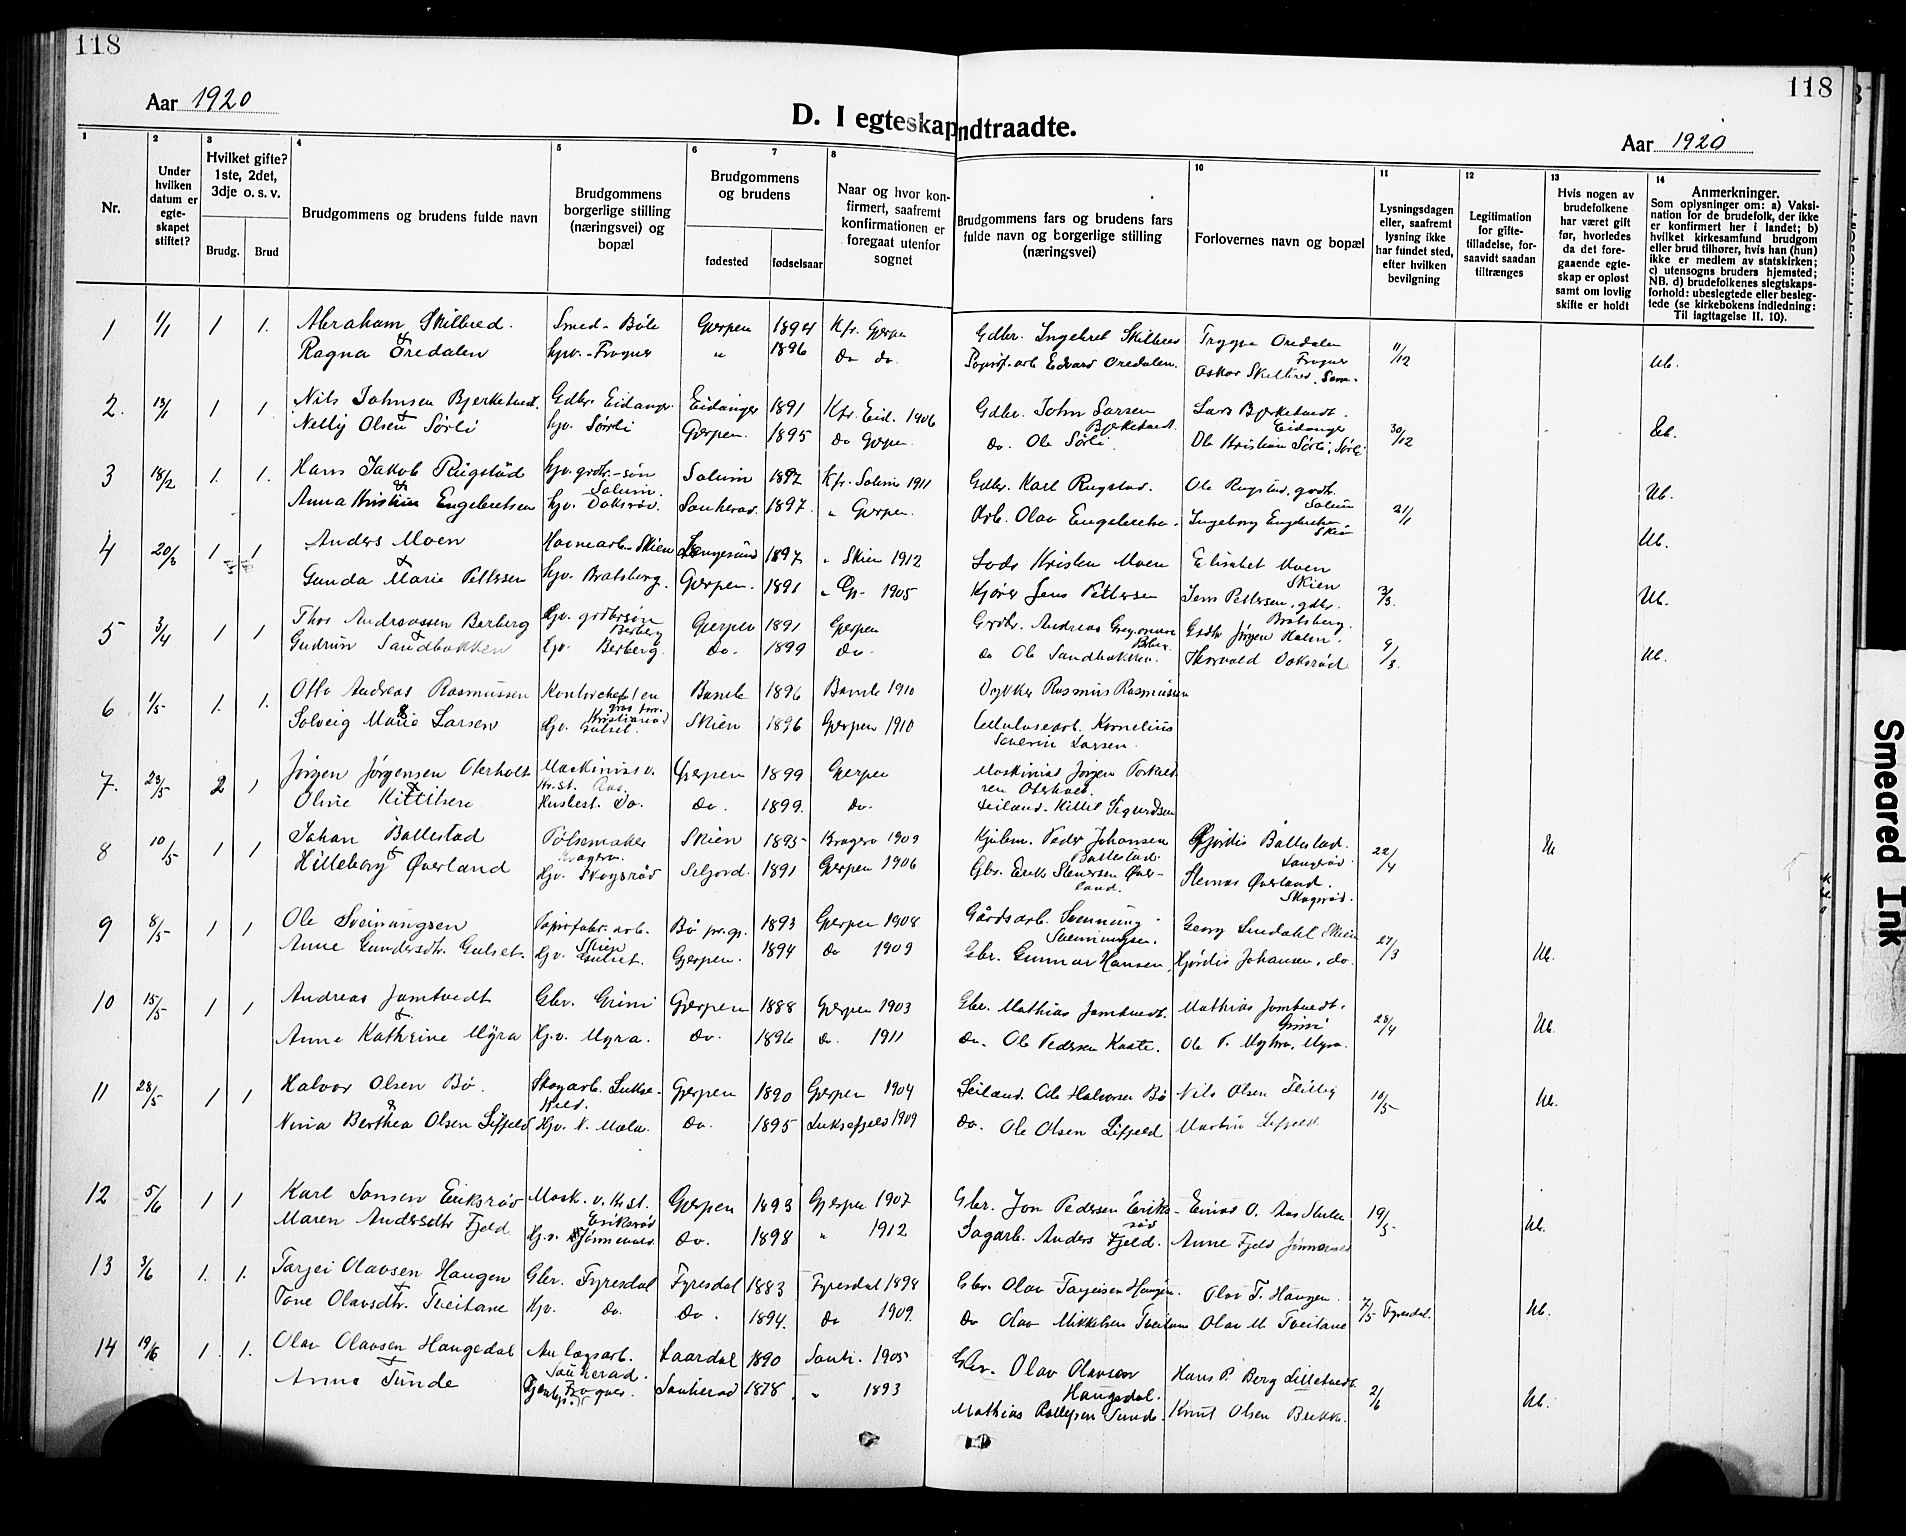 118
118
Aar 1920
D. I egteskap indtraadte.
Aar 1920
1
Nr.
2
Under hvilken datum er egte-skapet stiftet?
3
Hvilket gifte? 1ste, 2det, 3dje o. s. v.
Brudg.
Brud
4
Brudgommens og brudens fulde navn
5
Brudgommens borgerlige stilling (næringsvei) og bopæl
6
7
Brudgommens og brudens
fødested
fødselsaar
8
Naar og hvor kon-firmert, saafremt konfirmationen er foregaat utenfor sognet
Brudgommens fars og brudens fars fulde navn og borgerlige stilling (næringsvei)
10
Forlovernes navn og bopæl
11
Lysningsdagen eller, saafremt lysning ikke har fundet sted, efter hvilken bevilgning
12
Legitimation for gifte-tilladelse, for-saavidt saadan tiltrænges
13
Hvis nogen av brudefolkene har været gift før, hvorledes da det fore-gaaende egte-skap er opløst samt om lovlig skifte er holdt
14
Anmerkninger.
Som oplysninger om: a) Vaksi-nation for de brudefolk, der ikke er konfirmert her i landet; b) hvilket kirkesamfund brudgom eller brud tilhører, hvis han (hun) ikke er medlem av statskirken; c) utensogns bruders hjemsted; NB. d) brudefolkenes slegtskaps-forhold: ubeslegtede eller besleg-tede (se kirkebokens indledning: Til Iagttagelse II. 10).
1 1/1 1 1. Abraham Skilbred. Smed - Böle Gjerpen 1894 Kfr. Gjerpen Gdbr. Ingebret Skilbred Trygve Oredalen Frogner 11/12 Ub.
& Ragna Oredalen hjv. - Frogner " 1896 do do. Papirf. arb. Edvard Oredalen. Oskar Skilbred, Sem.
2. 13/1 1 1. Nils Johnsen Bjerketvedt. Gdbr. Eidanger. Eidanger 1891 Kfr. Eid. 1906 Gdbr. John Larsen Bjerketvedt. Lars Bjerketvedt. Eidanger 30/12 Ub.
& Nelly Olsen Sørli hjv. Sørli Gjerpen. 1895 do Gjerpen do. Ole Sørli. Ole Kristian Sørli, Sørli
3 18/2 1. 1. Hans Jakob Rugstad hjv. grdbr.-søn Solum. Solum 1892 Kfr. Solum 1911 Gdbr. Karl Rugstad. Ole Rugstad, gdbr. Solum 21/1 Ub.
& Anna Kristine Engebretsen hjv. Doksrød. Sauherad. 1897. " Gjerpen. Arb. Olav Engebretsen. Ingeborg Engebretsen Skien
4 20/3 1 1 Anders Moen Havnearb. - Skien Langesund 1897 " Skien 1912 Lods Kristen Moen Elisabet Moen Skien 3/3. Ub.
& Gunda Marie Pettersen hjv. Bratsberg. Gjerpen. 1891 " Gj- 1905 Kjører Jens Pettersen Jens Pettersen, gdbr. Bratsberg. Ub.
5 3/4 1 1 Thor Andreassen Berberg hjv. grdbrsøn Berberg Gjerpen 1891 Gjerpen Grdbr. Andreas Gregersen Berberg Grdbr Jørgen Holm. 9/3. Ub.
& Gudrun Sandbakken hjv. Berberg. do. 1899 do. do Ole Sandbakken. Thorvald Doksrød
6 1/5 1. 1. Otto Andreas Rasmussen Kontorchef Bamle 1896 Bamle 1910 Dykker Rasmus Rasmussen
& Solveig Marie Larsen Hjv. Gulset. Skien 1896 Gjerpen 1910 Cellulosearb. Kornelius Severin Larsen.
7. 23/5 2 1 Jørgen Jørgensen Oterholt Maskinist v. Kr.st. Aas. Gjerpen 1899 Gjerpen Maskinist Jørgen Torkildsen Oterholt.
& Oline Kittilsen Husbest. do. do. 1899. do. Leiland. Kittil Sigurdsen
8 10/5 1 1 Johan Ballestad Pølsemaker Kragerø. Skien 1895 Kragerø 1909 Kjulem. Peder Johansen Ballestad. Hjördis Ballestad. Langerød. 22/4 Ub
& Hilleborg Øverland Hjv. Skogsrød Seljord. 1891 Gjerpen 1906 Gbr. Erik Stenersen Øverland. Stenar Øverland. Skogsrød.
9 8/5 1 1 Ole Sveinungsen Papirfabr. arb. Skien Bø pr.gj. 1893 Gjerpen 1908 Gårdsarb. Svenung Sveinungsen. Georg Lindahl Skien 27/3 Ub.
Anne Gundersdtr. Gulset. Hjv. Gulset. Gjerpen. 1894 do 1909 Gbr. Gunnar Hansen. Hjördis Johansen, do.
10 15/5 1 1 Andreas Jomtvedt Gbr. Grini Gjerpen 1888 Gjerpen 1903 Gbr. Mathias Jomtvedt. Mathias Jomtvedt. Grini 28/4 Ub.
& Anne Kathrine Myra Hjv. Myra. do. 1896 do. 1911 do. Ole Pedersen Kaate. Ole P. Myhra, Myra.
11 28/5 1 1 Halvor Olsen Bø. Skogarb. Luksefjeld. Gjerpen 1890 Gjerpen 1904 Leiland. Ole Halvorsen Bø Nils Olsen Flittig 10/5 Ub.
& Nina Berthea Olsen Lifjeld Hjv. N. Mæla. do. 1895 Luksefjeld 1909 do. Ole Olsen Lifjeld Martin Lifjeld
12 5/6 1 1 Karl Jonsen Eriksrød Mask. v. Kr.st. Eriksrød Gjerpen 1893 Gjerpen 1907 Gbr. Jon Pedersen Eriksrød Einar O. Aas Skien 19/5 Ub.
Maren Andersdtr Fjeld Hjv. Jønnevald. do. 1898 " 1912 Sagarb. Anders Fjeld. Anne Fjeld Jønnevald
13 3/6 1. 1. Tarjei Olavsen Haugen Gbr. Fyresdal Fyresdal 1883 Fyresdal 1898 Gbr. Olav Tarjeisen Haugen. Olav T. Haugen. 7/5 Fyresdal. Ub.
& Tone Olavsdtr. Tveitane Hjv. do. do. 1894. do 1909. do Olav Mikkelsen Tveitane Olav M. Tveitane
14 19/6 1. 1. Olav Olavsen Haugedal Anlægsarb. Sauherad. Laardal 1890 Sauh. 1905 Gbr. Olav Olavsen Haugedal. Hans P. Berg Lilletvedt 2/6 Ub.
& Anne Sunde Frogner. Sauherad 1878. " 1893 Mathias Rollefsen Sunde. Knut Olsen Bekk.
Smeared Ink